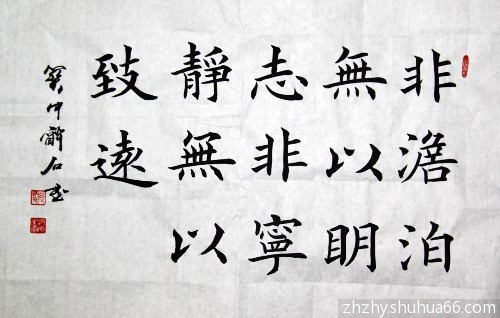 非澹泊
無以明
志非寧
靜無以
致遠
zhzhy.shuhua66.com